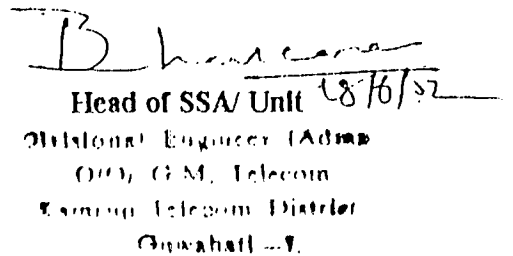 Head of SSA/ Unit 18/6/02
Divisional Engineer (Admn
O/O, G.M. Telecom
Kamrup Telecom District
Guwahati -7.